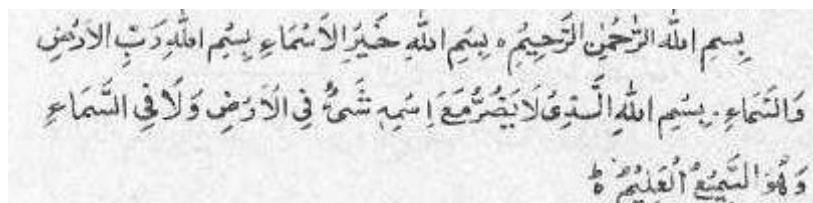 بِسْمِ اللهِ الرَّحْمٰنِ الرَّحِيْمِ ٥ بِسْمِ اللهِ خَيْرِ الْاَسْمَاءِ بِسْمِ اللهِ رَبِّ الْاَرْضِ
وَالسَّمَاءِ. بِسْمِ اللهِ الَّذِىْ لَا يَضُرُّ مَعَ اِسْمِهٖ شَىْءٌ فِى الْاَرْضِ وَلَا فِى السَّمَاءِ
وَهُوَ السَّمِيْعُ الْعَلِيْمُ ط